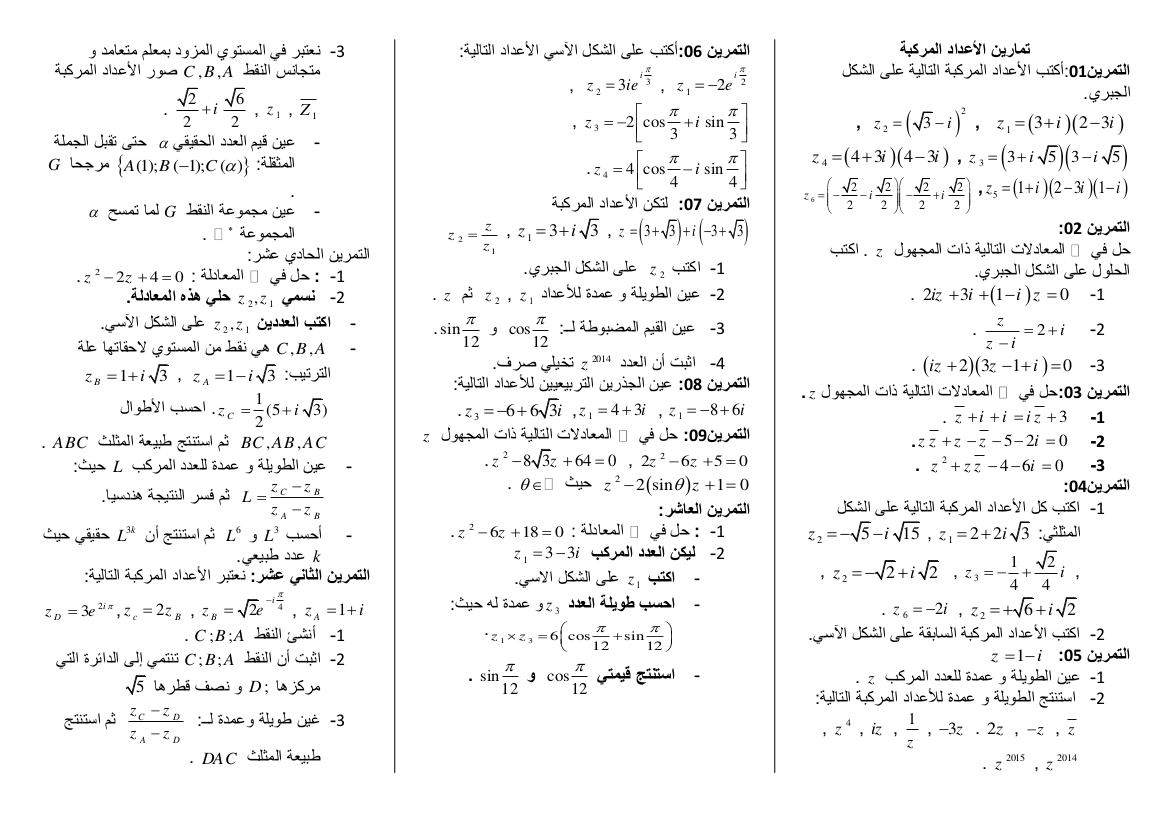 تمارين الأعداد المركبة
التمرين01:أكتب الأعداد المركبة التالية على الشكل
الجبري.
z₁=(3+i)(2−3i) , z₂=(√3−i)² ,
z₃=(3+i√5)(3−i√5) , z₄=(4+3i)(4−3i)
z₅=(1+i)(2−3i)(1−i) , z₆=(−√2/2−i√2/2)(−√2/2+i√2/2)
التمرين 02:
حل في □ المعادلات التالية ذات المجهول z . اكتب
الحلول على الشكل الجبري.
1- 2iz+3i+(1−i)z=0 .
2- z/(z−i)=2+i .
3- (iz+2)(3z−1+i)=0 .
التمرين 03:حل في □ المعادلات التالية ذات المجهول z .
1- z̅+i+i=iz̅+3 .
2- zz̅+z−z̅−5−2i=0 .
3- z²+zz̅−4−6i=0 .
التمرين04:
1- اكتب كل الأعداد المركبة التالية على الشكل
المثلثي: z₁=2+2i√3 , z₂=−√5−i√15
, z₃=−1/4+√2/4 i , z₂=−√2+i√2 ,
z₂=+√6+i√2 , z₆=−2i .
2- اكتب الأعداد المركبة السابقة على الشكل الآسي.
التمرين 05: z=1−i
1- عين الطويلة و عمدة للعدد المركب z .
2- استنتج الطويلة و عمدة للأعداد المركبة التالية:
z̅ , −z , 2z . −3z , 1/z , iz , z⁴ ,
z²⁰¹⁴ , z²⁰¹⁵ .
التمرين 06:أكتب على الشكل الآسي الأعداد التالية:
z₁=−2e^(iπ/2) , z₂=3ie^(iπ/3) ,
z₃=−2[cos π/3+i sin π/3] ,
z₄=4[cos π/4−i sin π/4] .
التمرين 07: لتكن الأعداد المركبة
z=(3+√3)+i(−3+√3) , z₁=3+i√3 , z₂=z/z₁
1- اكتب z₂ على الشكل الجبري.
2- عين الطويلة و عمدة للأعداد z₁ , z₂ ثم z .
3- عين القيم المضبوطة لـ: cos π/12 و sin π/12 .
4- اثبت أن العدد z²⁰¹⁴ تخيلي صرف.
التمرين 08: عين الجذرين التربيعيين للأعداد التالية:
z₁=−8+6i , z₁=4+3i , z₃=−6+6√3i .
التمرين09: حل في □ المعادلات التالية ذات المجهول z
2z²−6z+5=0 , z²−8√3z+64=0 .
z²−2(sinθ)z+1=0 حيث θ∈□ .
التمرين العاشر:
1- : حل في □ المعادلة : z²−6z+18=0 .
2- ليكن العدد المركب z₁=3−3i
- اكتب z₁ على الشكل الاسي.
- احسب طويلة العدد z₃ و عمدة له حيث:
z₁×z₃=6(cos π/12+sin π/12) .
- استنتج قيمتي cos π/12 و sin π/12 .
3- نعتبر في المستوي المزود بمعلم متعامد و
متجانس النقط C,B,A صور الأعداد المركبة
Z̅₁ , z₁ , √2/2+i√6/2 .
- عين قيم العدد الحقيقي α حتى تقبل الجملة
المثقلة: {A(1);B(−1);C(α)} مرجحا G
.
- عين مجموعة النقط G لما تمسح α
المجموعة □* .
التمرين الحادي عشر:
1- : حل في □ المعادلة : z²−2z+4=0 .
2- نسمي z₂,z₁ حلي هذه المعادلة.
- اكتب العددين z₂,z₁ على الشكل الآسي.
- C,B,A هي نقط من المستوي لاحقاتها علة
الترتيب: z_A=1−i√3 , z_B=1+i√3
z_C=1/2(5+i√3) . احسب الأطوال
BC,AB,AC ثم استنتج طبيعة المثلث ABC .
- عين الطويلة و عمدة للعدد المركب L حيث:
L=(z_C−z_B)/(z_A−z_B) ثم فسر النتيجة هندسيا.
- أحسب L³ و L⁶ ثم استنتج أن L³ᵏ حقيقي حيث
k عدد طبيعي.
التمرين الثاني عشر: نعتبر الأعداد المركبة التالية:
z_A=1+i , z_B=√2e^(−iπ/4) , z_c=2z_B , z_D=3e^(2iπ)
1- أنشئ النقط C;B;A .
2- اثبت أن النقط C;B;A تنتمي إلى الدائرة التي
مركزها D; و نصف قطرها √5
3- غين طويلة وعمدة لـ: (z_C−z_D)/(z_A−z_D) ثم استنتج
طبيعة المثلث DAC .